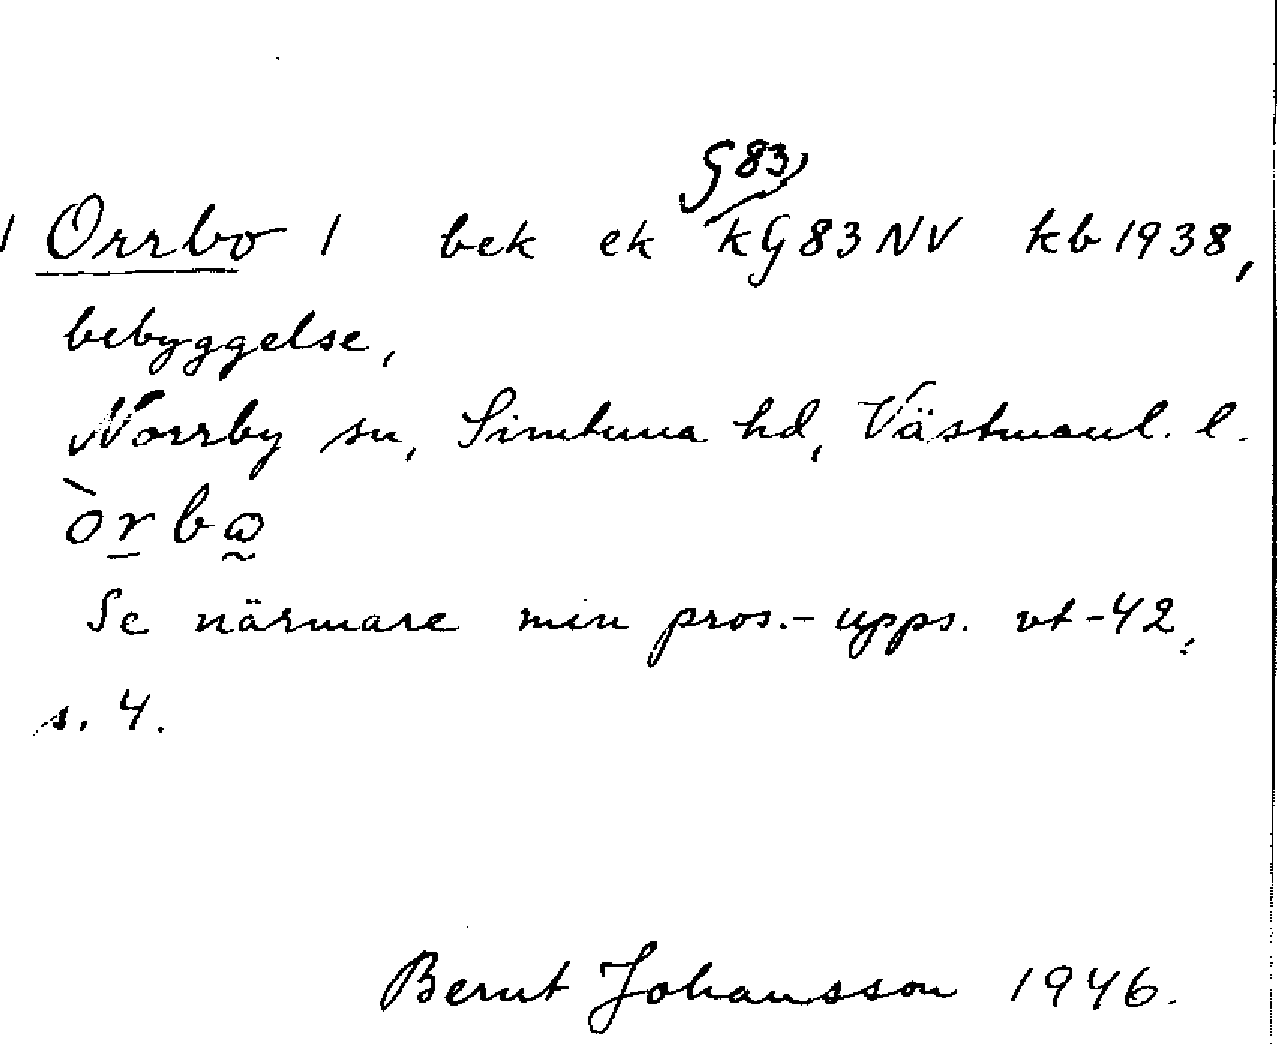 G83
/ Orrbo / bek ek kG83NV kb 1938,
bebyggelse,
Norrby sn, Simtuna hd, Västmanl. l.
òrbω
Se närmare min pros.-upps. vt-42,
s. 4.
Bernt Johansson 1946.